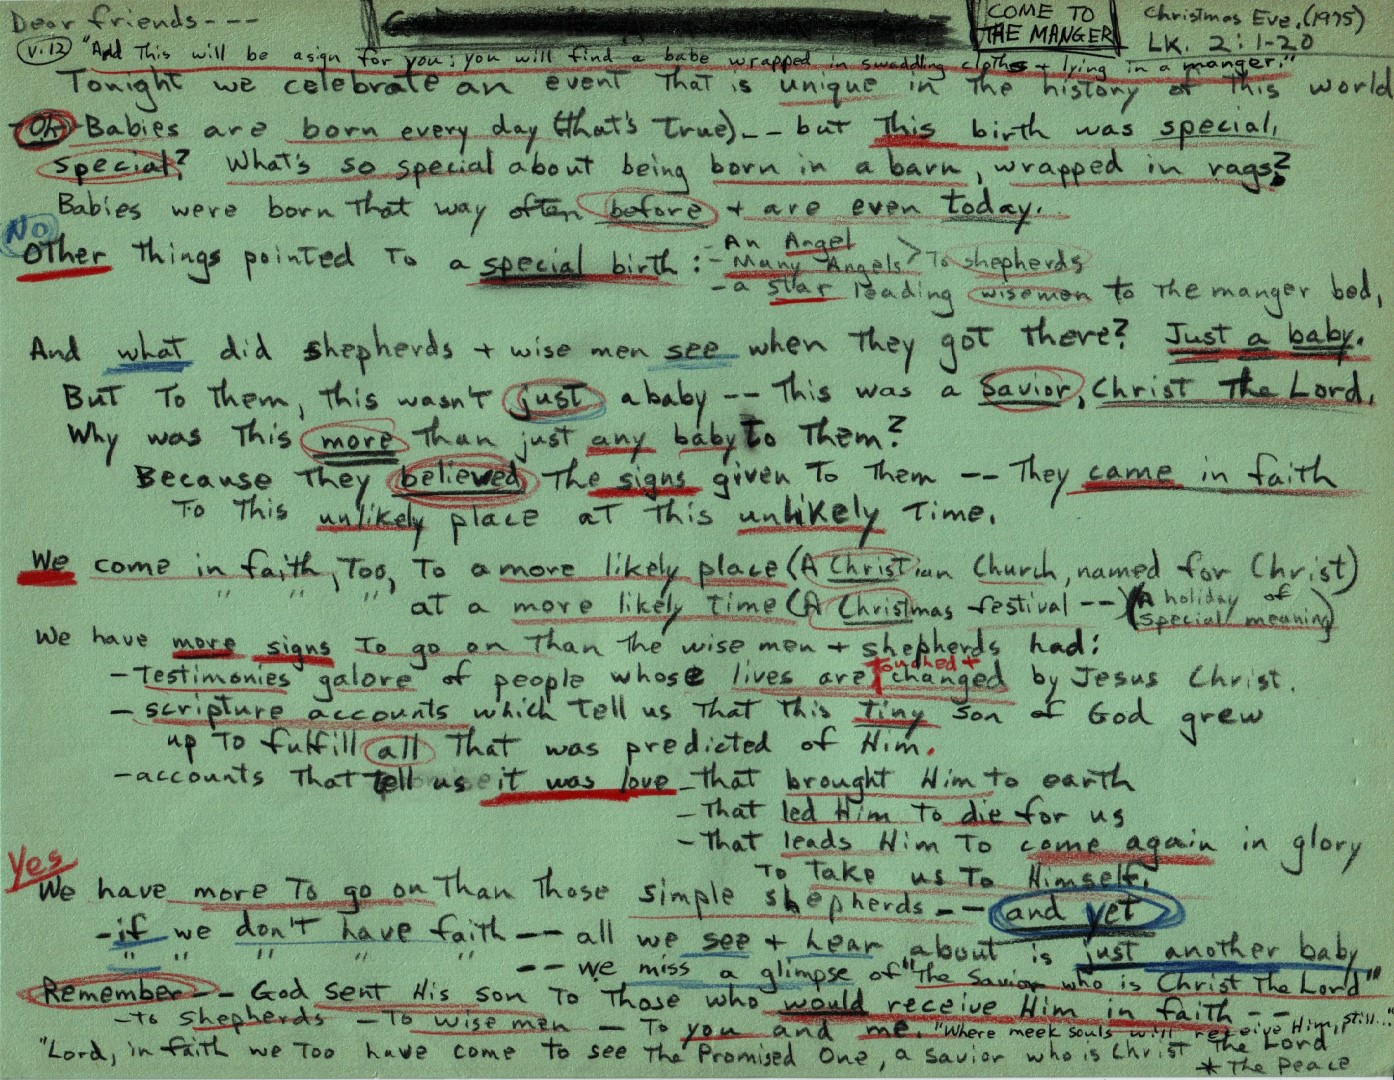 Dear friends---
COME TO
THE MANGER
Christmas Eve, (1975)
Lk. 2:1-20
v.12 "And this will be a sign for you: you will find a babe wrapped in swaddling cloths + lying in a manger."
Tonight we celebrate an event that is unique in the history of this world
Oh, Babies are born every day (that's true) -- but this birth was special,
special? What's so special about being born in a barn, wrapped in rags?
Babies were born that way often before + are even today.
No
Other things pointed to a special birth: - An Angel
- Many Angels > To shepherds
- a star leading wisemen to the manger bed,
And what did shepherds + wise men see when they got there? Just a baby.
But to them, this wasn't just a baby -- this was a Savior, Christ the Lord.
Why was this more than just any baby to them?
Because they believed the signs given to them -- they came in faith
to this unlikely place at this unlikely time.
We come in faith, too, to a more likely place (A Christian Church, named for Christ)
" " " at a more likely time (A Christmas festival -- (A holiday of
special meaning)
We have more signs to go on than the wise men + shepherds had:
- testimonies galore of people whose lives are touched + changed by Jesus Christ.
- scripture accounts which tell us that this tiny son of God grew
up to fulfill all that was predicted of Him.
- accounts that tell us it was love - that brought Him to earth
- that led Him to die for us
- that leads Him to come again in glory
to take us to Himself.
Yes
We have more to go on than those simple shepherds -- and yet
- if we don't have faith -- all we see + hear about is just another baby
" " " " " -- we miss a glimpse of "the Savior who is Christ the Lord"
Remember -- God sent His son to those who would receive Him in faith --
- to shepherds - to wise men - to you and me. "Where meek souls will receive Him, still..."
"Lord, in faith we too have come to see the Promised One, a Savior who is Christ the Lord
* The Peace